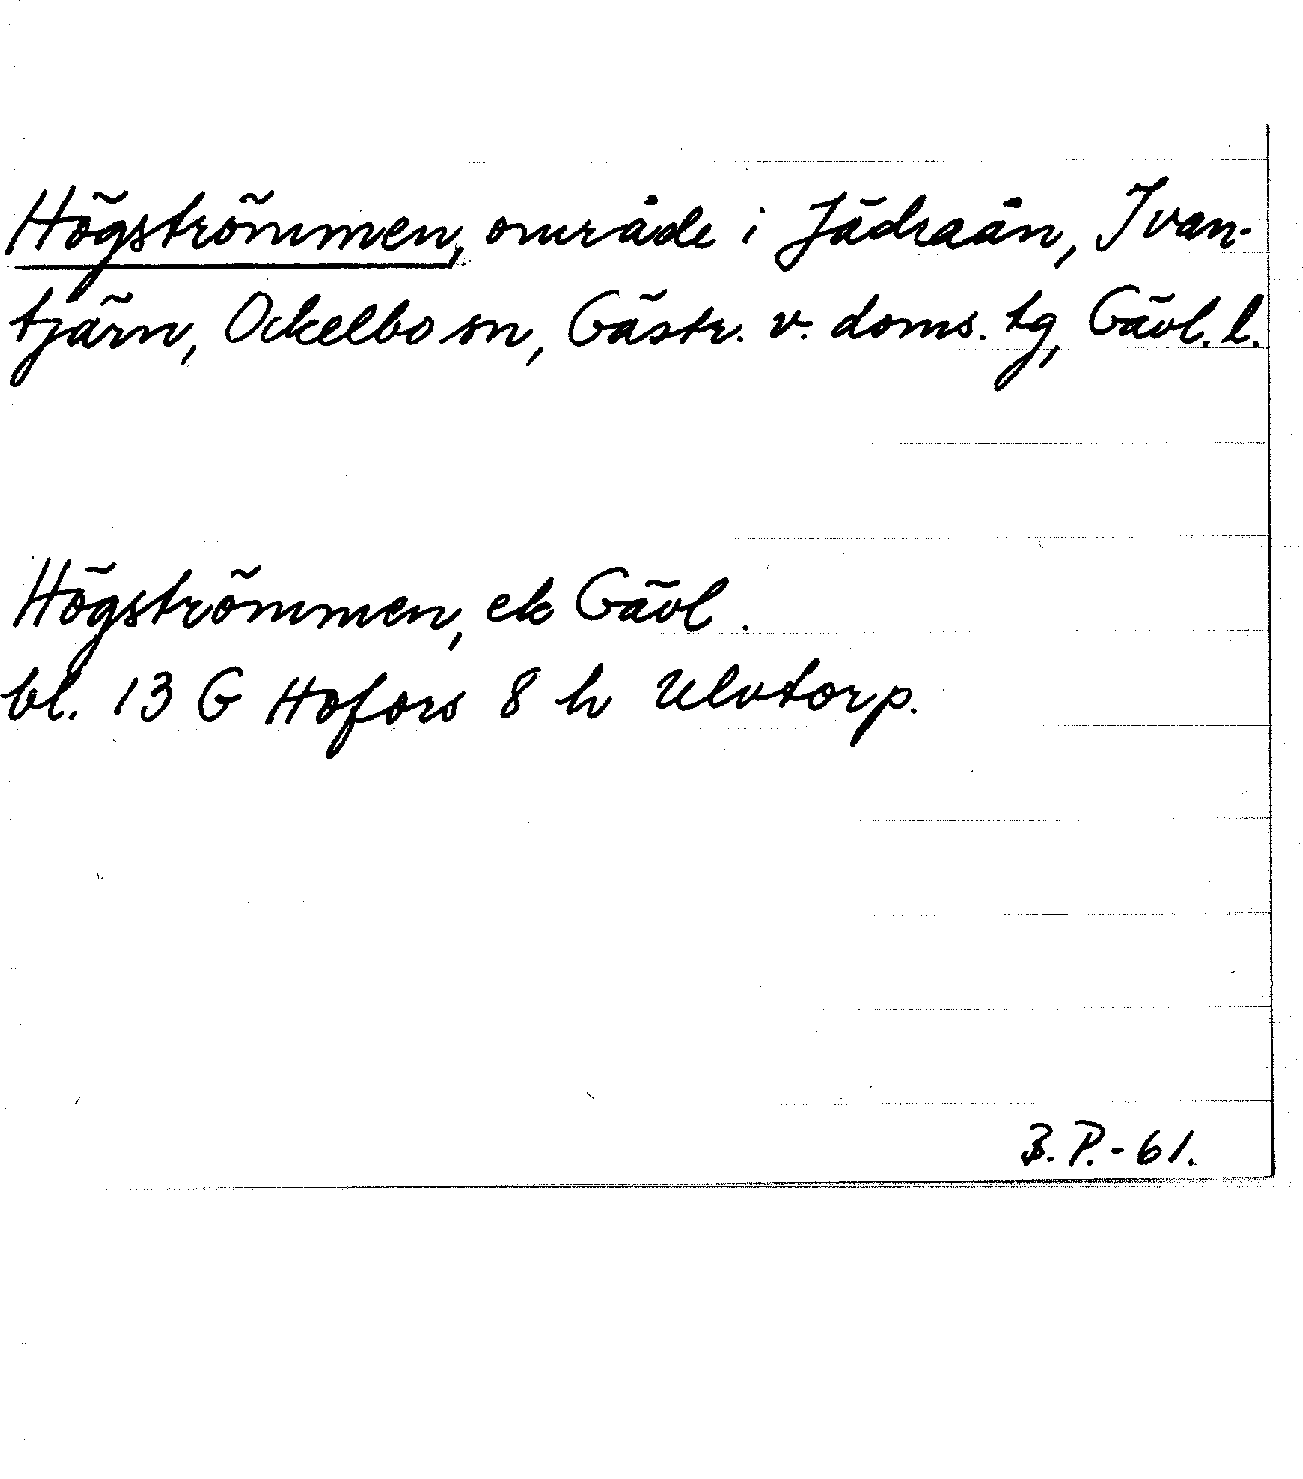 Högströmmen, område i Jädraån, Ivan-
tjärn, Ockelbo sn, Gästr. v. doms. tg, Gävl. l.
Högströmmen, ek Gävl.
bl. 13 G Hofors 8 h Ulvtorp.
B. P. - 61.